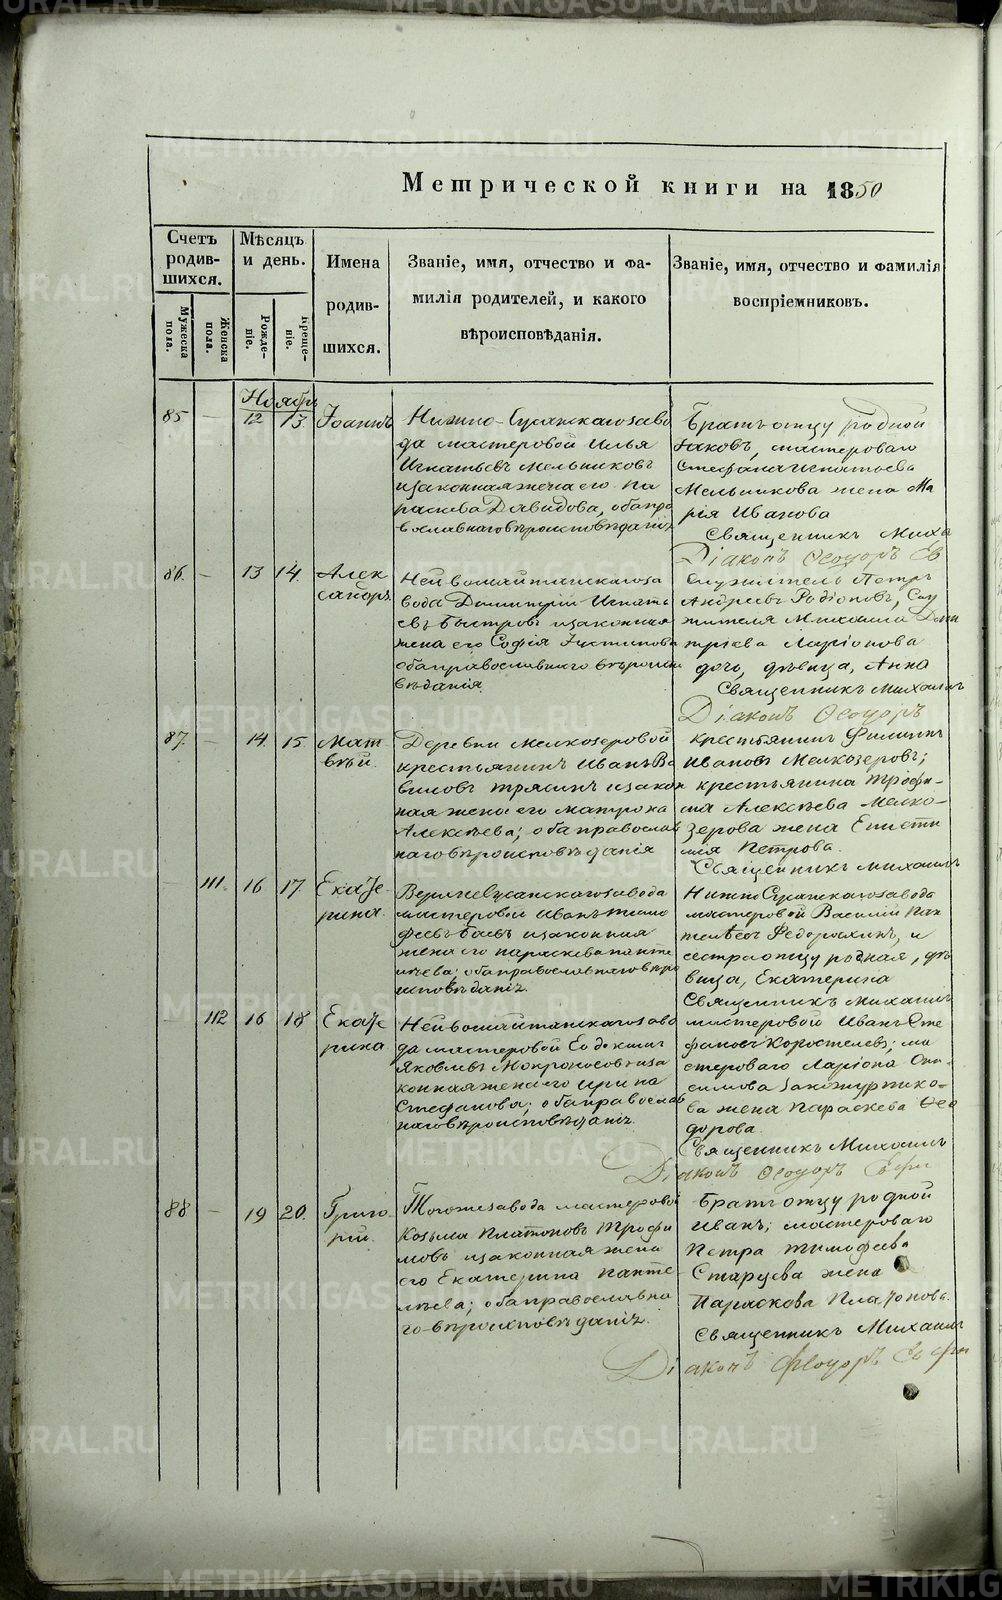 Метрической книги на 1850
Счетъ родив-шихся.
Мѣсяцъ и день.
Имена родив-шихся.
Званіе, имя, отчество и фа-
милія родителей, и какого
вѣроисповѣданія.
Званіе, имя, отчество и фамилія
воспріемниковъ.
Мужеска пола.
Женска пола.
Рожде-ніе.
Креще-ніе.
Ноябрь
85 — 12 13. Іоаннъ
Нижно-Сусанскаго заво
да мастеровой Илья
Игнатьевъ Мельниковъ
и законная жена его Па
раскева Давидова, оба пра
вославнаго вѣроисповѣданія
Братъ отцу родной
Іаковъ, мастероваго
Стефана Игнатьева
Мельникова жена Ма
рія Иванова
Священникъ Миха
Діаконъ Ѳеодоръ Ев
86. — 13 14. Алек
сандръ.
Нейвошайтанскаго за
вода Димитрій Игнать
евъ Быстровъ и законная
жена его Софія Іустинова
оба православнаго вѣроиспо
вѣданія.
Служитель Петръ
Андреевъ Родіоновъ, Слу
жителя Михаила Дими
тріева Ларіонова
дочь, дѣвица, Анна
Священникъ Михаилъ
Діаконъ Ѳеодоръ
87. — 14 15. Мат
вѣй.
Деревни Мелкозеровой
крестьянинъ Иванъ Ва
виловъ Трясинъ и закон-
ная жена его Матрона
Алексѣева; оба православ
наго вѣроисповѣданія
крестьянинъ Филиппъ
Ивановъ Мелкозеровъ;
крестьянина Трофи-
ма Алексѣева Мелко-
зерова жена Еписти
мія Петрова.
Священникъ Михаилъ
— 111. 16 17. Екате
рина.
Верхнесусанскаго завода
мастеровой Иванъ Тимо
феевъ Баевъ и законная
жена его Параскева Панте
лѣева; оба православнаго вѣро
исповѣданія.
Нижно Сусанскаго завода
мастеровой Василій Пан
телѣевъ Федорахинъ, и
сестра отцу родная, дѣ
вица, Екатерина
Священникъ Михаилъ
— 112 16 18 Екате
рина
Нейвошайтанскаго заво
да мастеровой Евдокимъ
Яковлевъ Мокроносовъ и за
конная жена его Ирина
Стефанова; оба православ
наго вѣроисповѣданія.
мастеровой Иванъ Сте
фановъ Коростелевъ; ма
стероваго Ларіона Они-
симова Закожурнико-
ва жена Параскева Ѳео
дорова.
Священникъ Михаилъ
Діаконъ Ѳеодоръ Ефи
88 — 19 20. Григо
рій.
Тогоже завода мастеровой
Козьма Платоновъ Трофи
мовъ и законная жена
его Екатерина Панте
лѣева; оба православна
го вѣроисповѣданія.
Братъ отцу родной
Иванъ; мастероваго
Петра Тимофеева
Старцева жена
Параскова Платонова.
Священникъ Михаилъ
Діаконъ Ѳеодоръ Ефи
METRIKI.GASO-URAL.RU